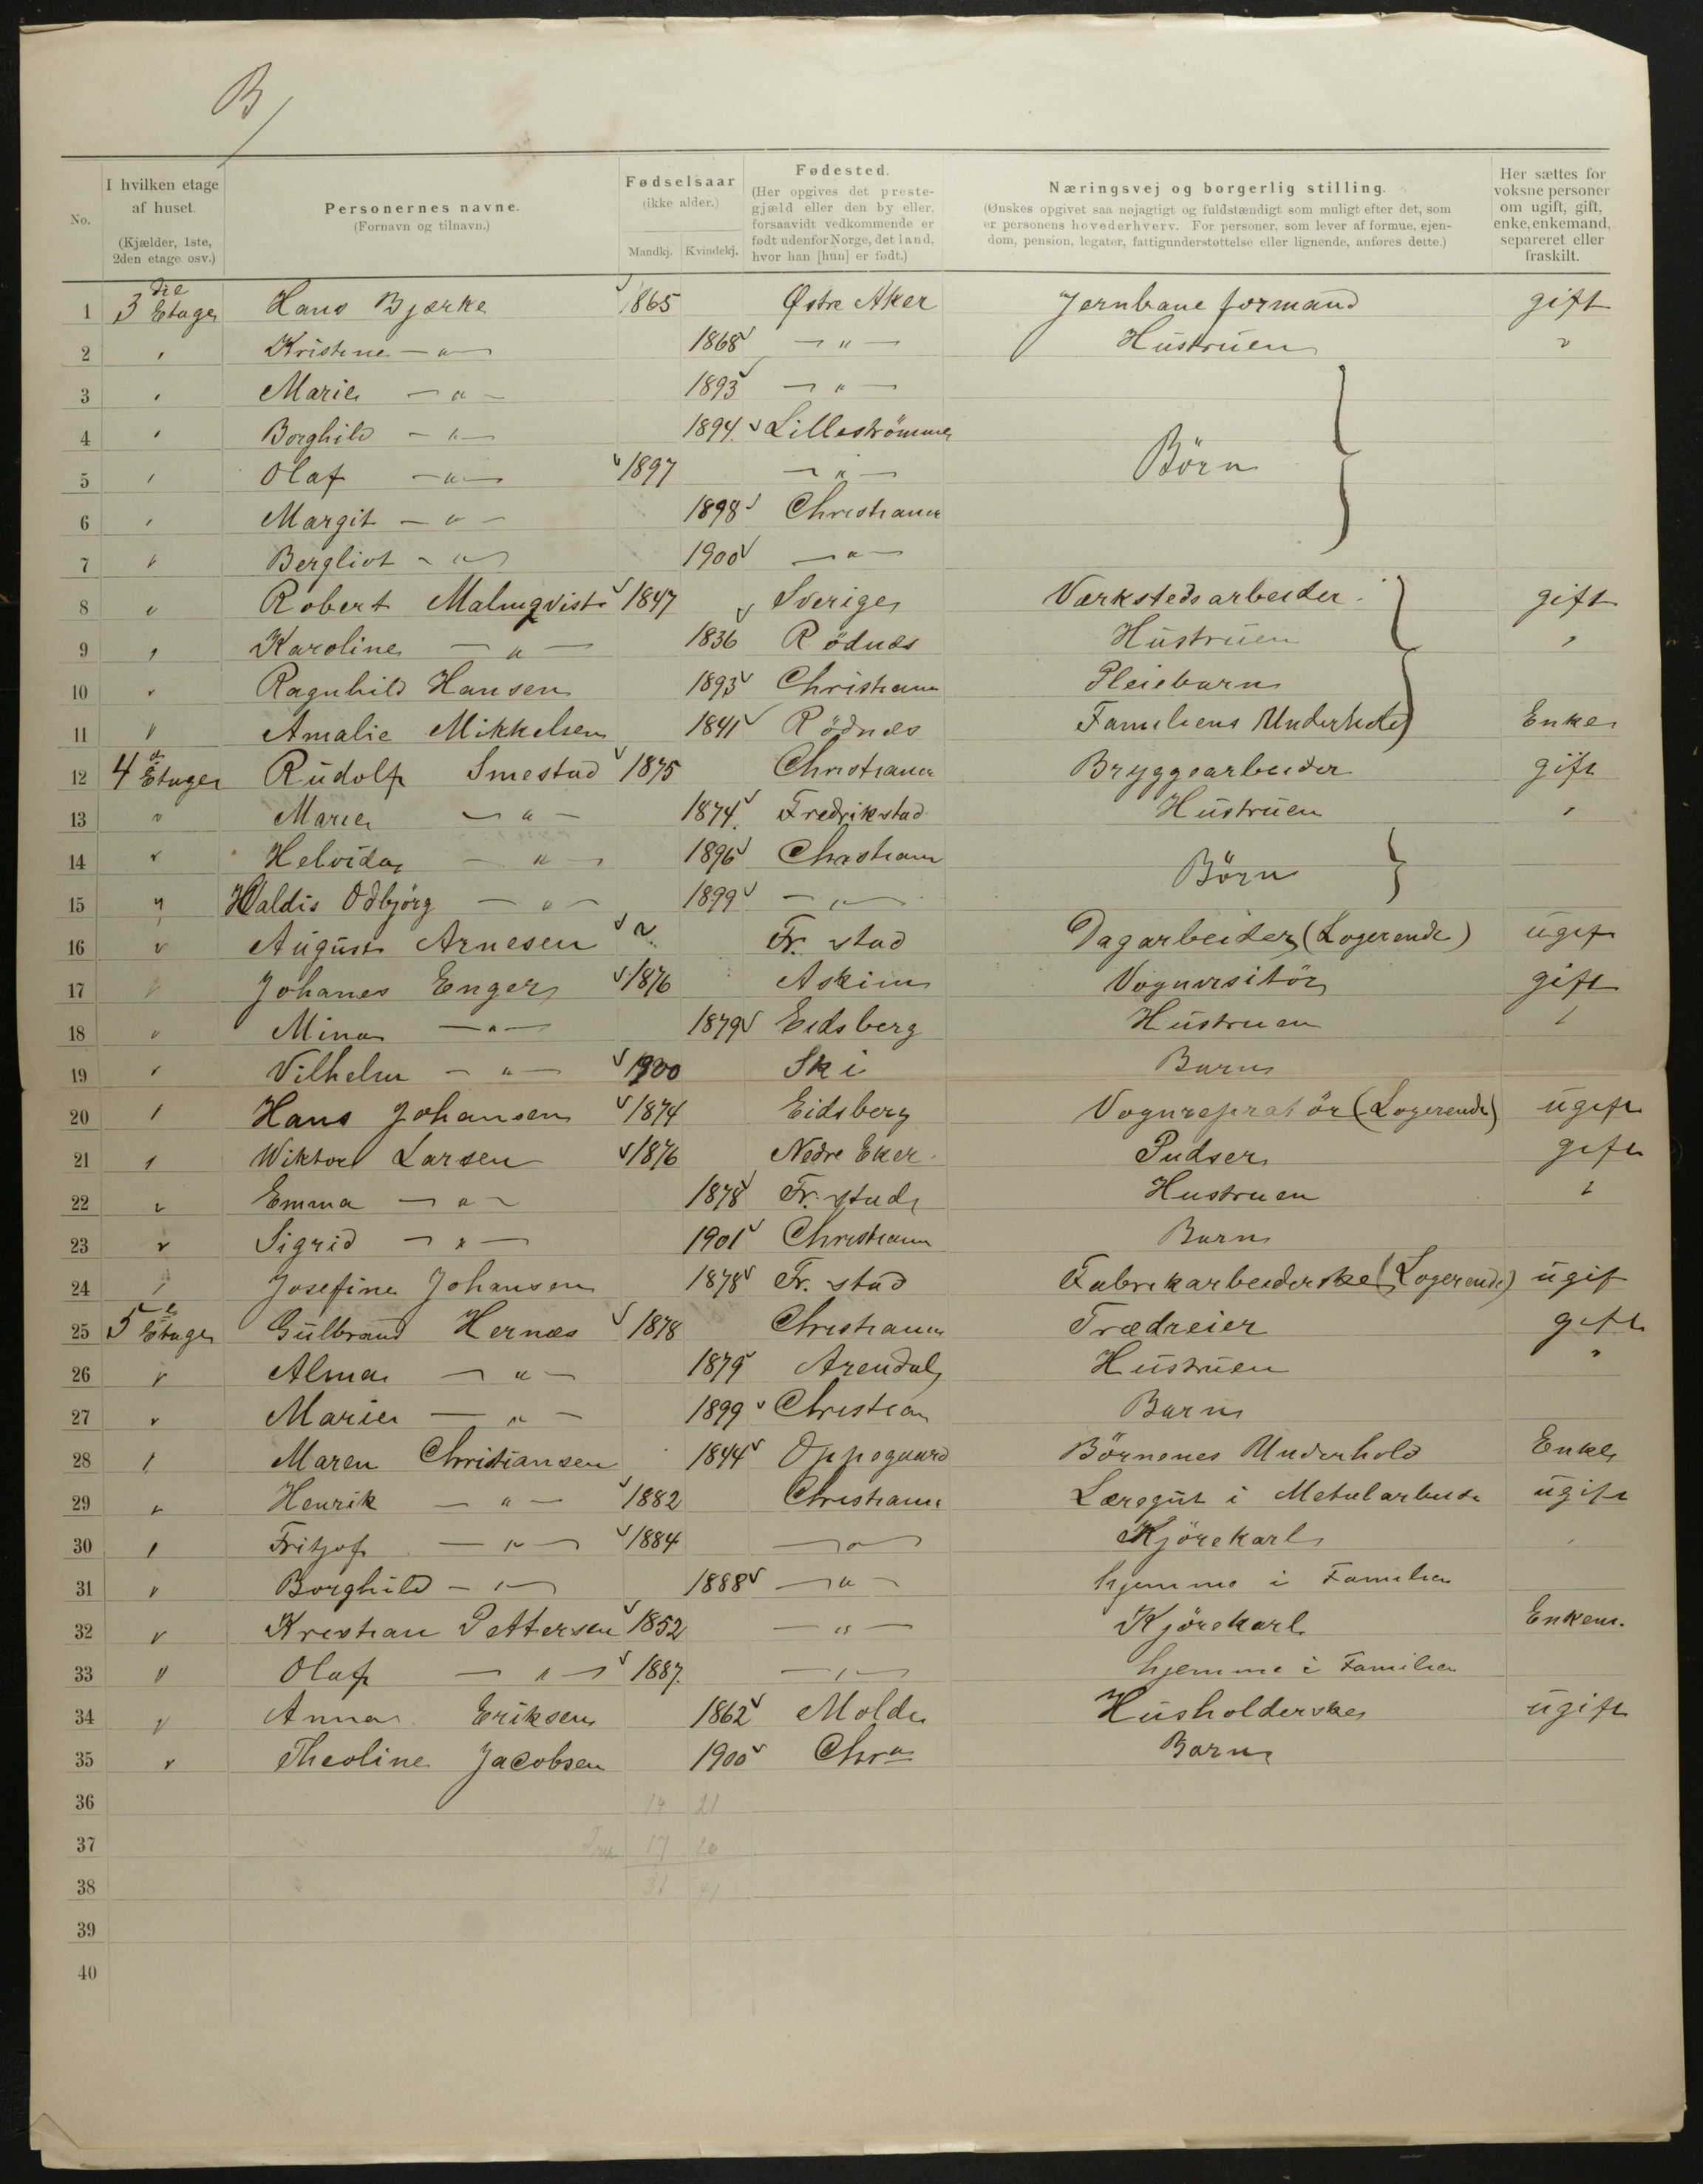 B/
No.
I hvilken etage af huset. (Kjælder, 1ste, 2den etage osv.)
Personernes navne. (Fornavn og tilnavn.)
Fødselsaar (ikke alder.) Mandkj. Kvindekj.
Fødested. (Her opgives det prestegjæld eller den by eller, forsaavidt vedkommende er født udenfor Norge, det land, hvor han [hun] er født.)
Næringsvej og borgerlig stilling. (Ønskes opgivet saa nøjagtigt og fuldstændigt som muligt efter det, som er personens hovederhverv. For personer, som lever af formue, ejendom, pension, legater, fattigunderstøttelse eller lignende, anføres dette.)
Her sættes for voksne personer om ugift, gift, enke, enkemand, separeret eller fraskilt.
1 3die Etage Hans Bjerke 1865 Østre Aker Jernbane formand gift
2 " Kristine —"— 1868 —"— Hustruen "
3 " Marie —"— 1893 —"—
4 " Borghild —"— 1894 Lilleströmmen Börn
5 " Olaf —"— 1897 —"—
6 " Margit —"— 1898 Christiania
7 " Bergliot —"— 1900 —"—
8 " Robert Malmqvist 1847 Sverige Værkstedsarbeider gift
9 " Karoline —"— 1836 Rödnæs Hustruen "
10 " Ragnhild Hansen 1893 Christiania Pleiebarn
11 " Amalie Mikkelsen 1841 Rödnæs Familiens Underhold Enke
12 4de Etage Rudolf Smestad 1875 Christiania Bryggearbeider gift
13 " Marie —"— 1874 Fredrikstad Hustruen "
14 " Helvida —"— 1896 Christiania Börn
15 " Valdis Odbjørg —"— 1899 —"—
16 " August Arnesen " Fr. stad Dagarbeider (Logerende) ugift
17 " Johanes Enger 1876 Askim Vognvisitör gift
18 " Mina —"— 1879 Eidsberg Hustruen "
19 " Vilhelm —"— 1900 Ski Barn
20 " Hans Johansen 1874 Eidsberg Vognrepratör (Logerende) ugift
21 " Wiktor Larsen 1876 Nedre Eker Pudser gift
22 " Emma —"— 1878 Fr. stad Hustruen "
23 " Sigrid —"— 1901 Christiania Barn
24 " Josefine Johansen 1878 Fr. stad Fabrikarbeiderske (Logerende) ugif
25 5te Etage Gulbrand Hernæs 1878 Christiania Trædreier gift
26 " Alma —"— 1879 Arendal Hustruen "
27 " Marie —"— 1899 Christian Barn
28 " Maren Christiansen 1844 Oppegaard Börnenes Underhold Enke
29 " Henrik —"— 1882 Christiania Læregut i Metalarbeide ugift
30 " Fritjof —"— 1884 —"— Kjörekarl "
31 " Borghild —"— 1888 —"— hjemme i Familien
32 " Kristian Pettersen 1852 —"— Kjörekarl Enkem.
33 " Olaf —"— 1887 —"— hjemme i Familien
34 " Anna Eriksen 1862 Molde Husholderske ugift
35 " Theoline Jacobsen 1900 Chra Barn
36 14 21
37 17 20
38 31 41
39
40